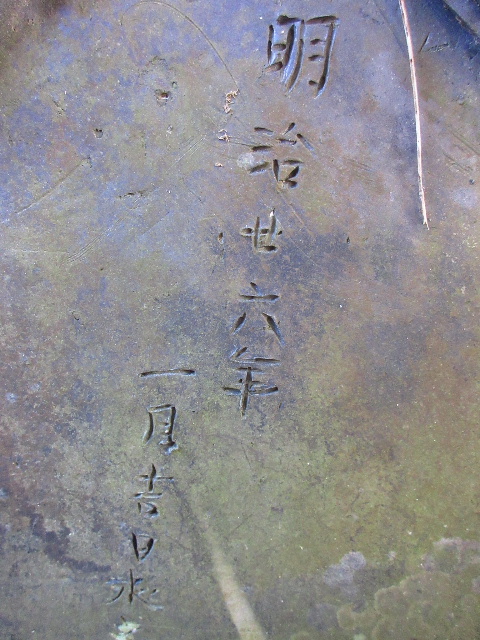 明治廿六年
一月吉日